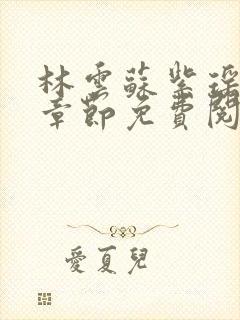 林雲蘇紫瑤
章節免費閱
愛夏兒